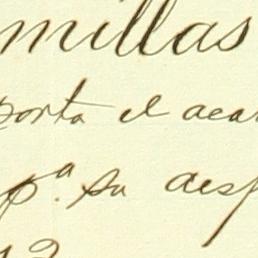 millas
porta el acar
pª. su desp